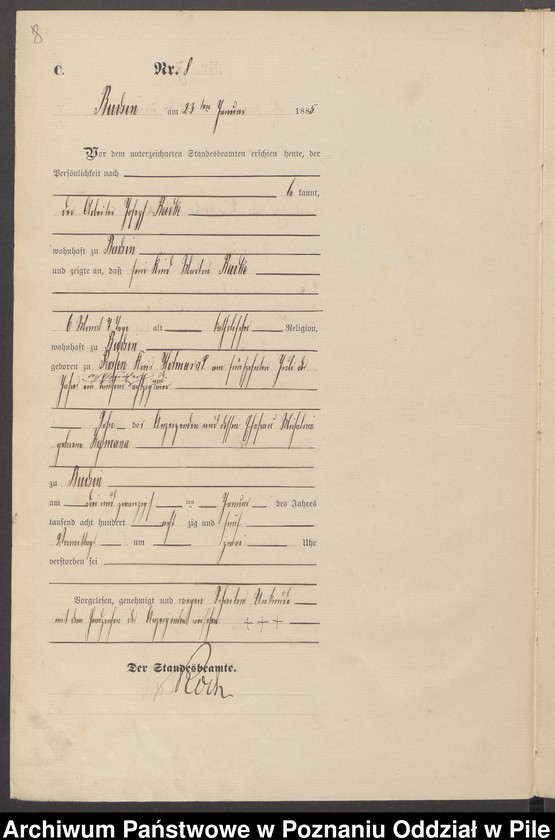 8
C. Nr. 8
am 23 ten Januar 1885
Vor dem unterzeichneten Standesbeamten erschien heute, der
Persönlichkeit nach
be kannt,
der Arbeiter Joseph
wohnhaft zu
und zeigte an, daß sein Kind Martin
6 Monat 7 Tage alt katholischer Religion,
wohnhaft zu
geboren zu Kreis am fünfzehnten Juli des
Jahres ein tausend achthundert
Sohn des Anzeigenden und dessen Ehefrau
geborene
zu
am drei und zwanzig ten Januar des Jahres
tausend acht hundert acht zig und fünf
Vormittags um zwei Uhr
verstorben sei
Vorgelesen, genehmigt und wegen Schreibens Unkunde
mit dem Handzeichen des Anzeigenden versehen +++
Der Standesbeamte.
Koch
Archiwum Państwowe w Poznaniu Oddział w Pile